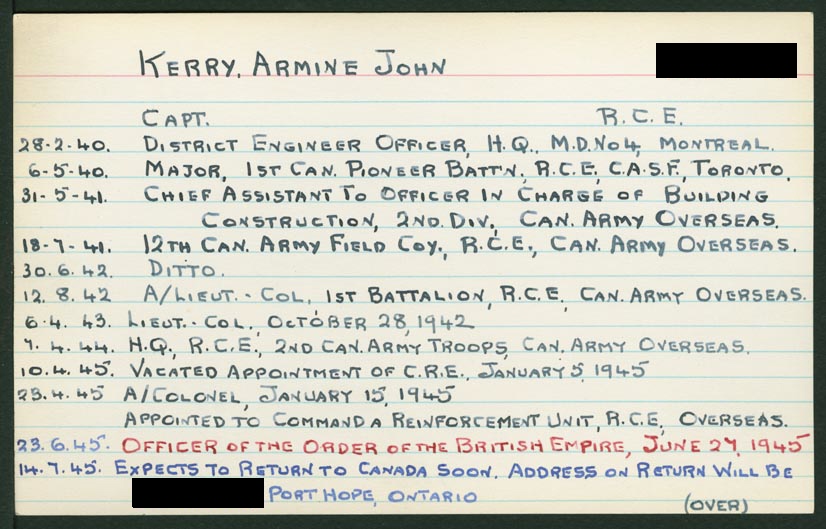 KERRY, ARMINE JOHN
CAPT. R.C.E.
28-2-40. DISTRICT ENGINEER OFFICER, H.Q., M.D. No 4, MONTREAL.
6-5-40. MAJOR, 1ST CAN. PIONEER BATT'N, R.C.E., C.A.S.F., TORONTO.
31-5-41. CHIEF ASSISTANT TO OFFICER IN CHARGE OF BUILDING
CONSTRUCTION, 2ND. DIV., CAN. ARMY OVERSEAS.
18-7-41. 12TH CAN. ARMY FIELD COY., R.C.E., CAN. ARMY OVERSEAS.
30.6.42. DITTO.
12.8.42 A/LIEUT.-COL., 1ST BATTALION, R.C.E., CAN. ARMY OVERSEAS.
6.4.43. LIEUT.-COL., OCTOBER 28, 1942
7.4.44. H.Q., R.C.E., 2ND CAN. ARMY TROOPS, CAN. ARMY OVERSEAS.
10.4.45. VACATED APPOINTMENT OF C.R.E., JANUARY 5, 1945
23.4.45 A/COLONEL, JANUARY 15, 1945
APPOINTED TO COMMAND A REINFORCEMENT UNIT, R.C.E., OVERSEAS.
23.6.45. OFFICER OF THE ORDER OF THE BRITISH EMPIRE, JUNE 27, 1945
14.7.45. EXPECTS TO RETURN TO CANADA SOON. ADDRESS ON RETURN WILL BE
PORT HOPE, ONTARIO
(OVER)